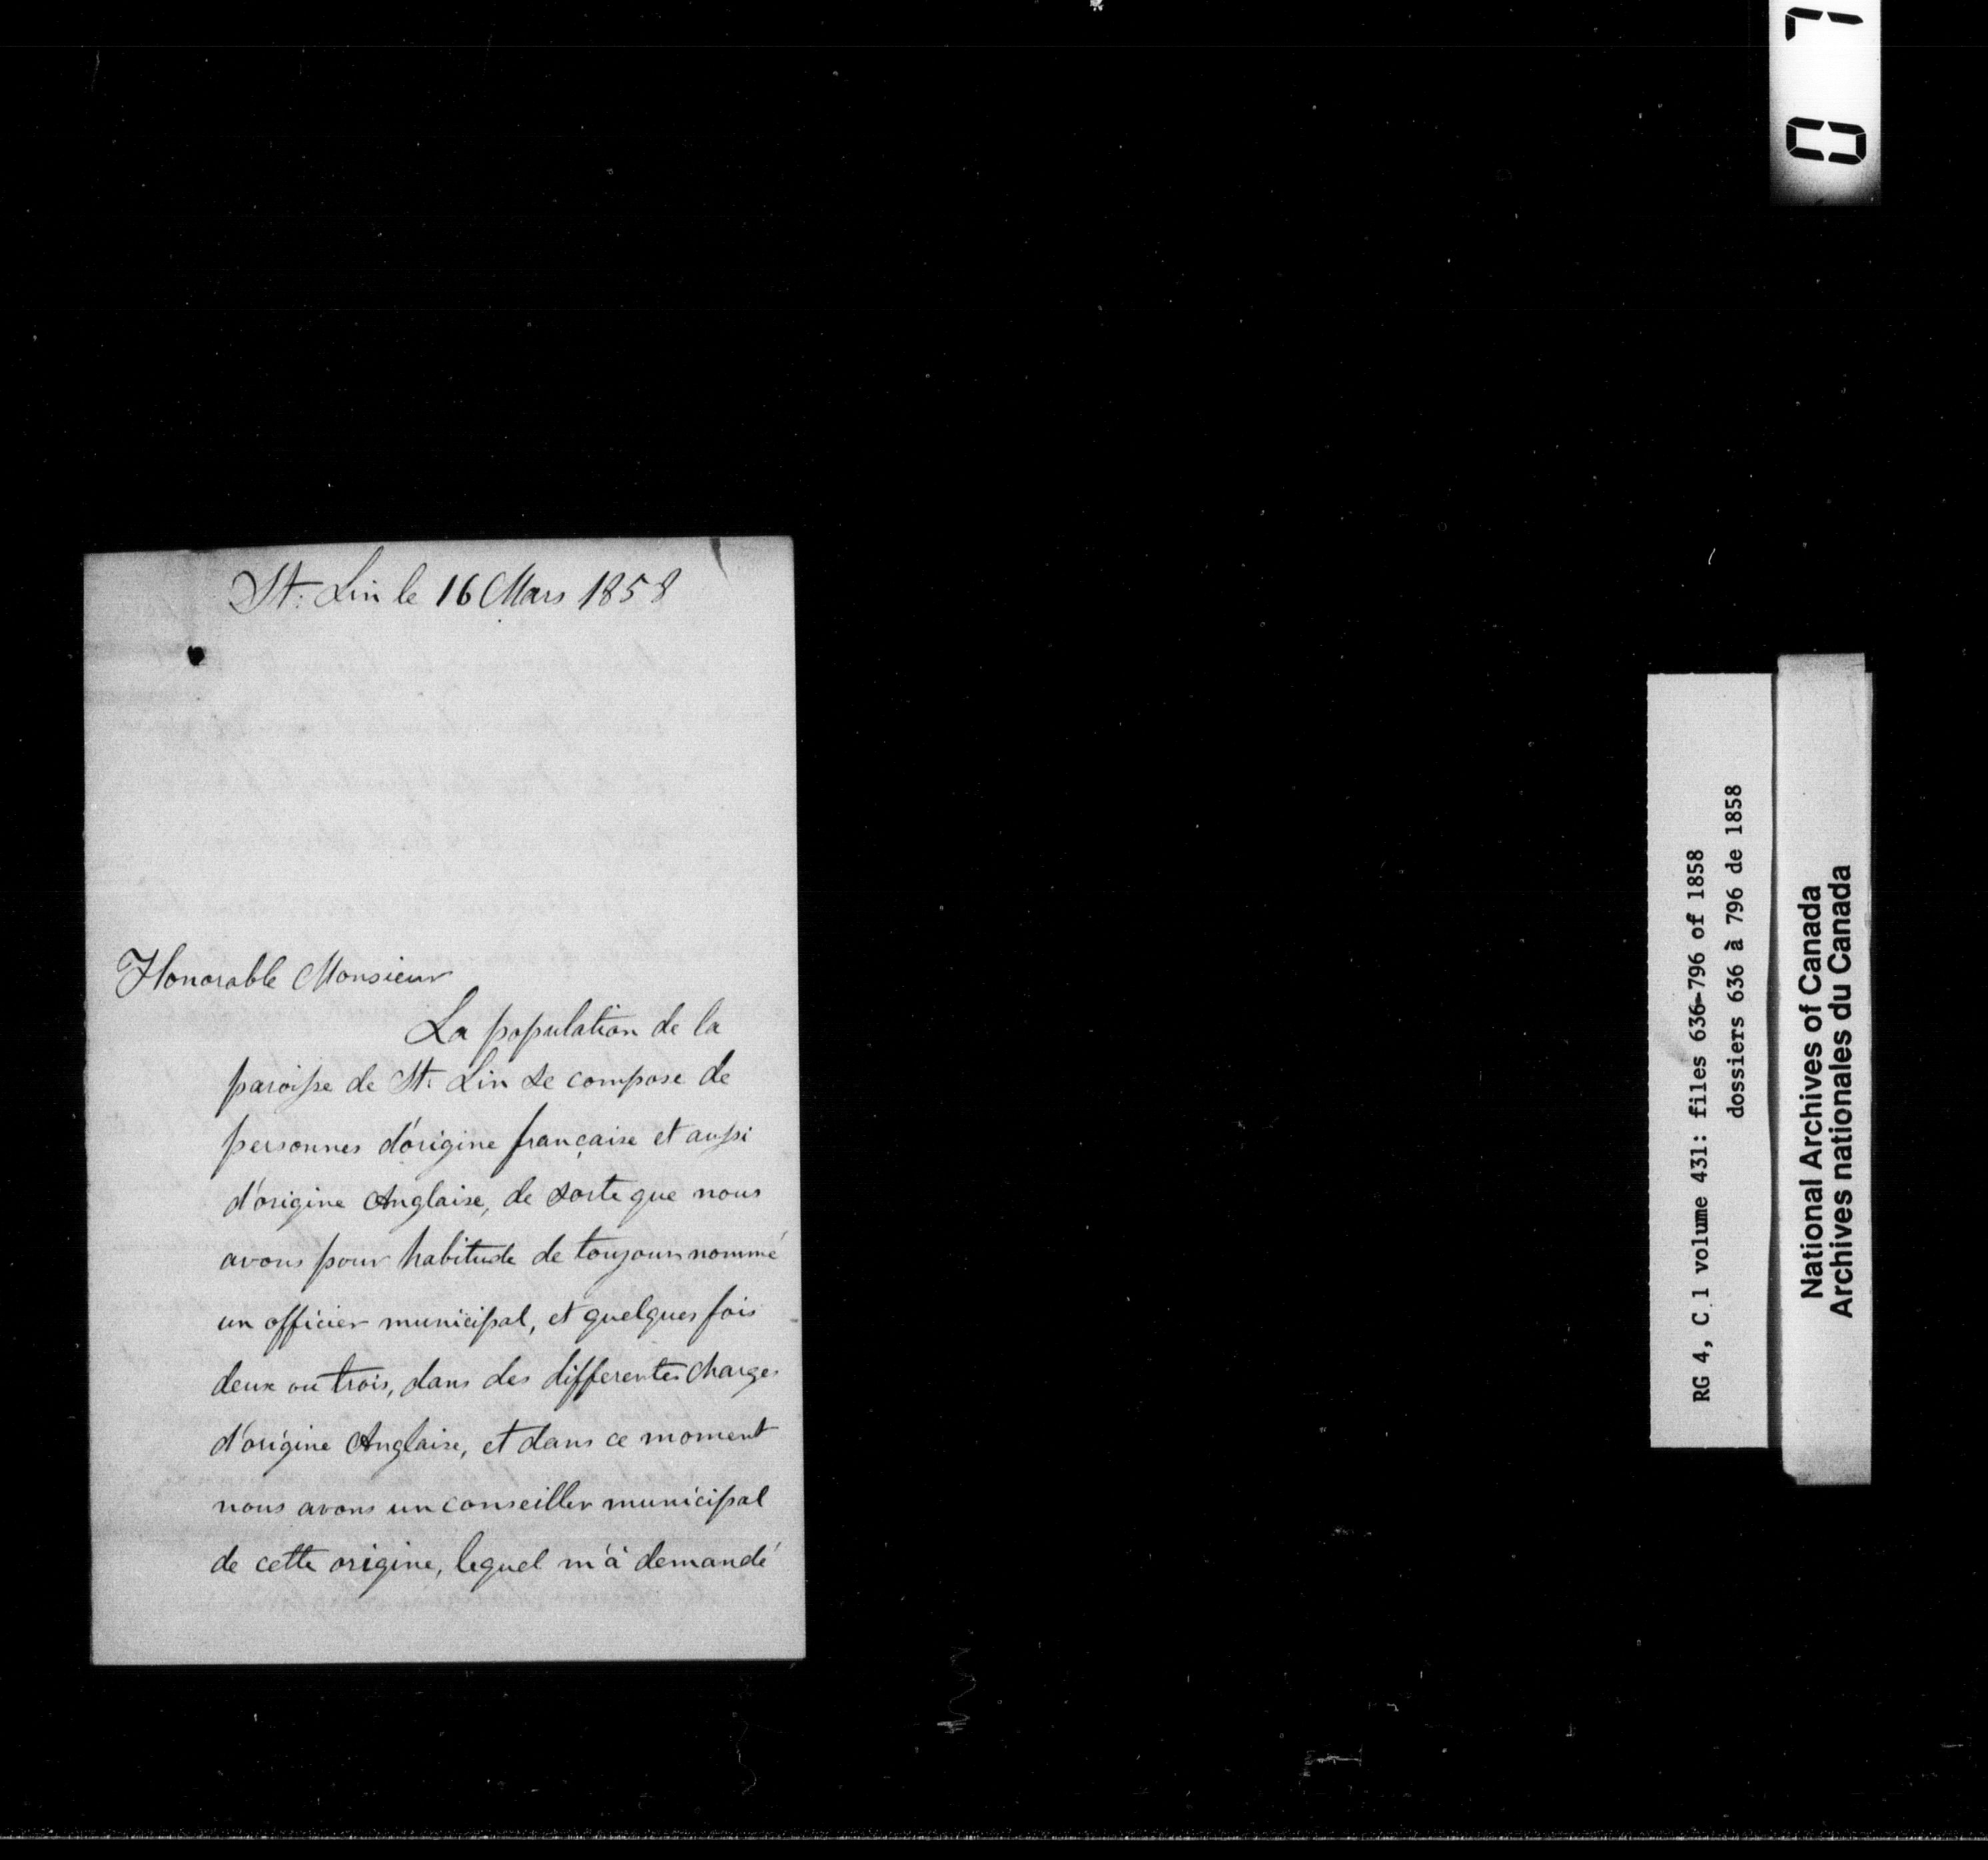 St. Lin le 16 Mars 1858
Honorable Monsieur
La population de la
paroisse de St. Lin se compose de
personnes d'origine française et aussi
d'origine Anglaise, de sorte que nous
avons pour habitude de toujours nommé
un officier municipal, et quelques fois
deux ou trois, dans des differentes charges
d'origine Anglaise, et dans ce moment
nous avons un conseiller municipal
de cette origine, lequel m'à demandé
RG 4, C 1 volume 431: files 636-796 of 1858
dossiers 636 à 796 de 1858
National Archives of Canada
Archives nationales du Canada